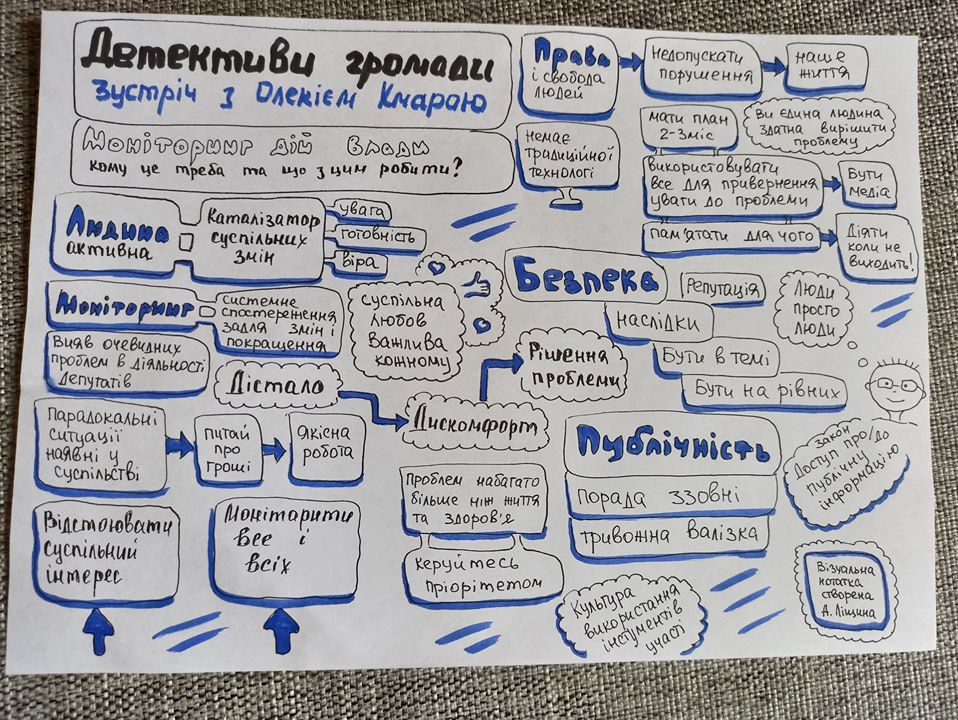 Детективи громади
Зустріч з Олекієм Кмарою
Моніторинг дій влади
кому це треба та що з цим робити?
Людина
активна
Каталізатор
суспільних
змін
увага
готовність
віра
Моніторинг
системне
спостереження
задля змін і
покращення
Вияв очевидних
проблем в діяльності
Депутатів
Дістало
суспільна
любов
важлива
кожному
Дискомфорт
Рішення
проблеми
Парадокальні
ситуації
наявні у
суспільстві
питай
про
гроші
якісна
робота
Відстоювати
суспільний
інтерес
Монітарити
все і
всіх
Проблем набагато
більше ніж життя
та здоров'я
керуйтесь
пріорітетом
Права
і свобода
людей
недопускати
порушення
наше
життя
немає
традиційної
технологі
мати план
2-3міс
Ви єдина людина
здатна вирішити
проблему
використовувати
все для привернення
увати до проблеми
Бути
медіа
пам'ятати для чого
Діяти
коли не
виходить!
Безпека
Репутація
наслідки
Бути в темі
Бути на рівних
Люди
просто
люди
Публічність
порада ззовні
тривожна валізка
закон
Доступ про/до
публічну
інформацію
Культура
використання
інстументів
участі
Візуальна
нотатка
створена
А. Ліщина